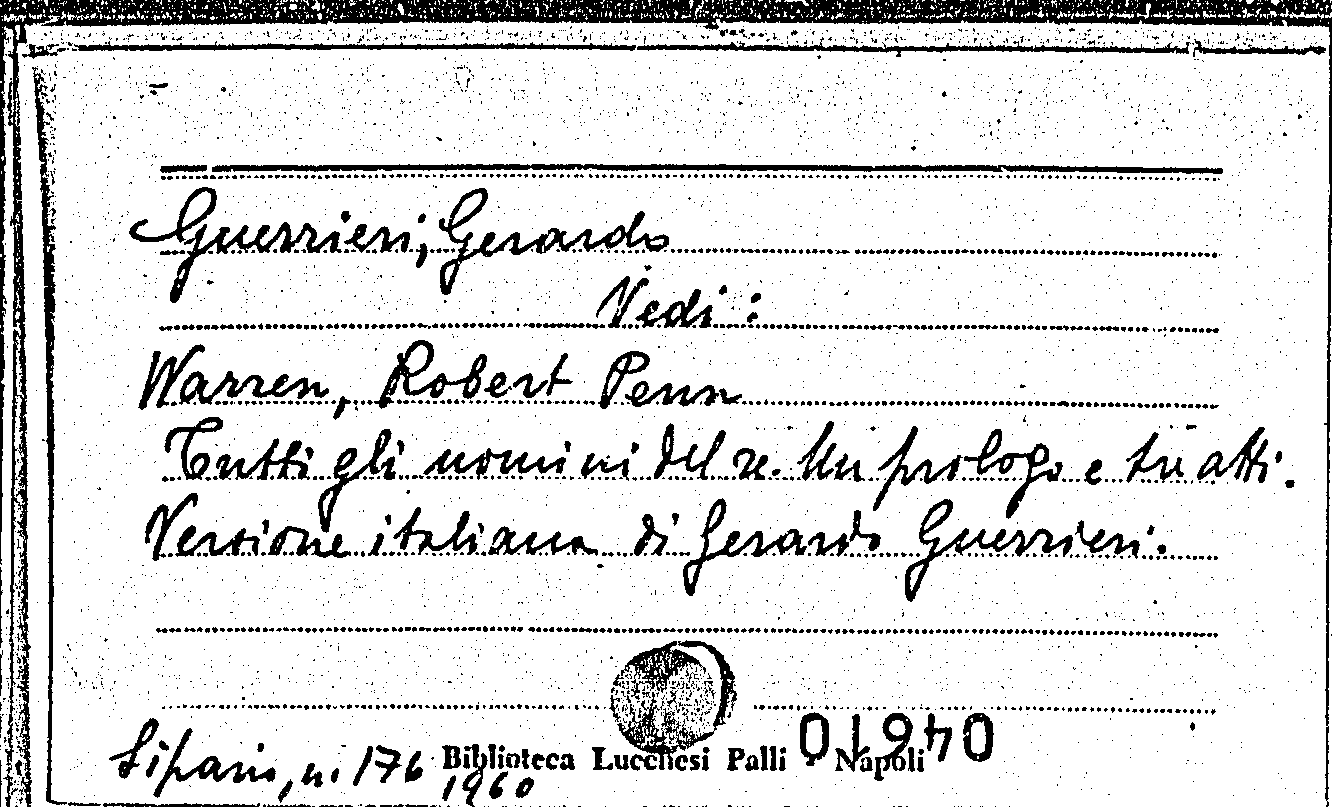 Guerrieri, Gerardo
Vedi :
Warren, Robert Penn
Tutti gli uomini del re. Un prologo e tre atti.
Versione italiana di Gerardo Guerrieri.
Sipario, n. 176 Biblioteca Lucchesi Palli - Napoli
1960